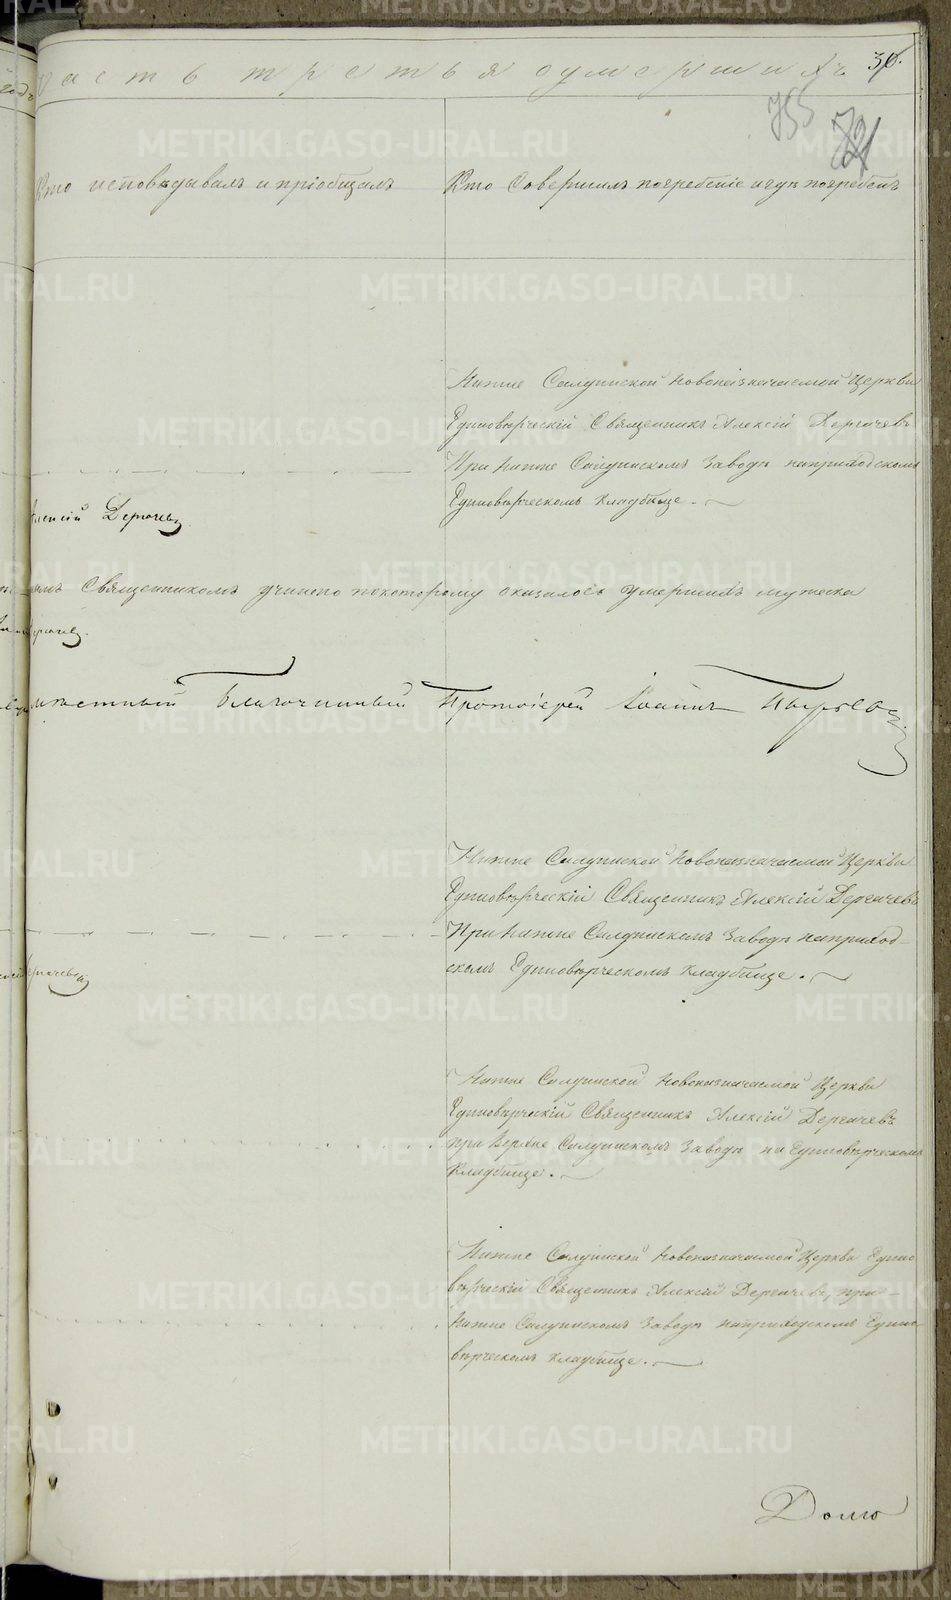 часть третья оумершихъ 36.
755
Кто исповѣдывалъ и пріобщалъ
Кто Совершилъ погребеніе и гдѣ погребенъ
Нижне Салдинской Новоназначаемой Церкви
Единовѣрческій Священникъ Алексій Дергачевъ
При Нижне Салдинскомъ Заводѣ на приходскомъ
Единовѣрческомъ кладбище.
Алексій Дергачевъ
Священникомъ учинено по которому оказалось умершихъ мужеска
Дергачевъ.
Благочинный Протоіерей Іоаннъ
Нижне Салдинской Новоназначаемой Церкви
Единовѣрческій Священникъ Алексій Дергачевъ
При Нижне Салдинскомъ Заводѣ на приход-
скомъ Единовѣрческомъ кладбище.
Дергачевъ
Нижне Салдинской Новоназначаемой Церкви
Единовѣрческій Священникъ Алексій Дергачевъ
при Верхне Салдинскомъ Заводѣ на Единовѣрческомъ
кладбище.
Нижне Салдинской Новоназначаемой Церкви Едино
вѣрческій Священникъ Алексій Дергачевъ, при-
Нижне Салдинскомъ Заводѣ на приходскомъ Едино
вѣрческомъ кладбище.
METRIKI.GASO-URAL.RU